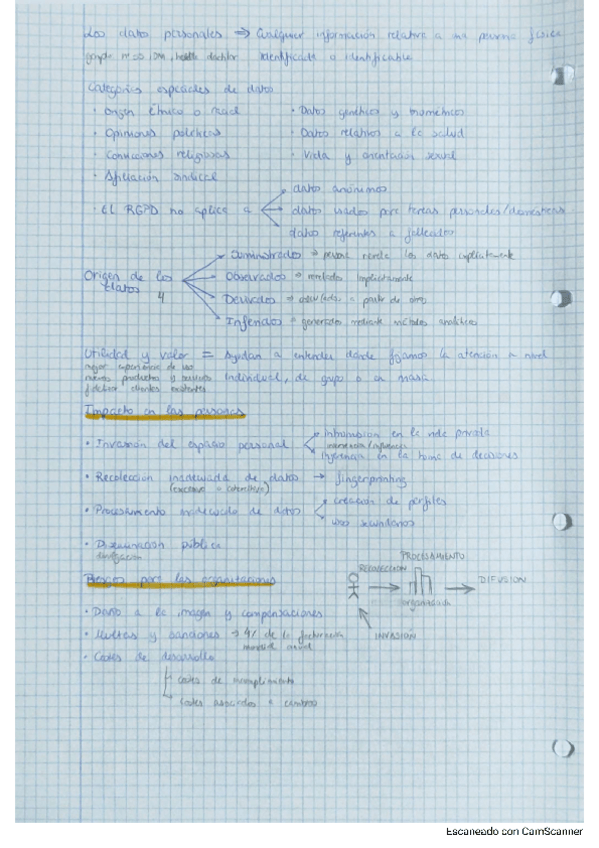 Los datos personales → Cualquier información relativa a una persona física
identificada o identificable
Categorías especiales de datos
· Origen étnico o racial
· Datos genéticos y biométricos
· Opiniones políticas
· Datos relativos a la salud
· Convicciones religiosas
· Vida y orientación sexual
· Afiliación sindical
· El RGPD no aplica a
datos anónimos
datos usados para tareas personales/domésticas
datos referentes a fallecidos
Origen de los datos
4
Suministrados → persona revela los datos explícitamente
Observados → revelados implícitamente
Derivados → calculados a partir de otros
Inferidos → generados mediante métodos analíticos
Utilidad y valor = Ayudan a entender donde fijamos la atención a nivel
individual, de grupo o en masa.
mejor experiencia de uso
nuevos productos y servicios
fidelizar clientes existentes
Impacto en las personas
· Invasión del espacio personal
intromisión en la vida privada
injerencia en la toma de decisiones
· Recolección inadecuada de datos → fingerprinting
(excesiva o
· Procesamiento inadecuado de datos
creación de perfiles
usos secundarios
· Diseminación pública
Riesgos para las organizaciones
RECOLECCION
PROCESAMIENTO
organización
DIFUSION
INVASION
· Daño a la imagen y compensaciones
· Multas y sanciones → 4% de la facturación
mundial anual
· Costes de desarrollo
costes de incumplimiento
costes asociados a cambios
Escaneado con CamScanner